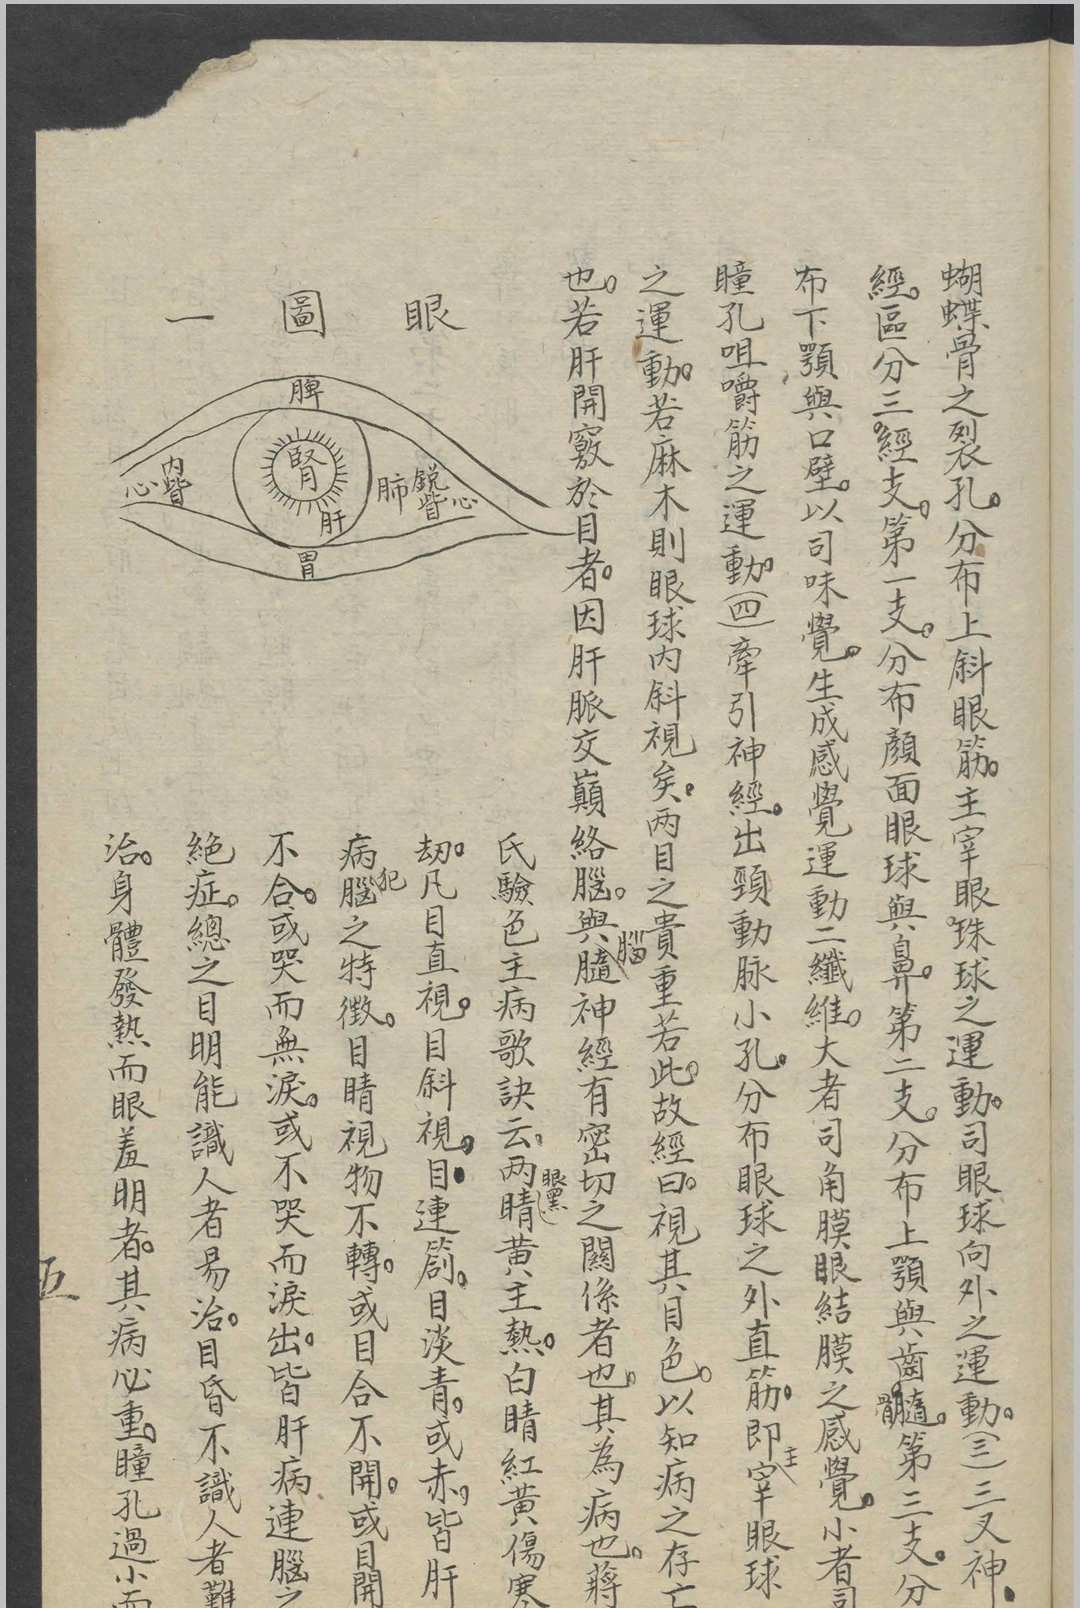 蝴蝶骨之裂孔。分布上斜眼筋。主宰眼珠球之運動。司眼球向外之運動。(三)三叉神
經。區分三經支。第一支。分布顏面眼球與鼻。第二支。分布上顎與齒齶髓。第三支。分
布下顎與口壁。以司味覺。生成感覺運動二纖維。大者司角膜眼結膜之感覺。小者司
瞳孔咀嚼筋之運動。(四)牽引神經。出頸動脉小孔。分布眼球之外直筋。即主宰眼球
之運動。若麻木則眼球内斜視矣。两目之貴重若此。故經曰。視其目色。以知病之存亡
也。若肝開竅於目者。因肝脈交巔絡腦。與腦髓神經有密切之關係者也。其為病也。蔣
氏驗色主病歌訣云。两眼黑睛黄主熱。白睛紅黃傷寒
劫。凡目直視。目斜視。目連劄。目淡青。或赤。皆肝
病犯腦之特徵。目睛視物不轉。或目合不開。或目開
不合。或哭而無淚。或不哭而淚出。皆肝病連腦之
絕症。總之目明能識人者易治。目昏不識人者難
治。身體發熱而眼羞明者。其病必重。瞳孔過小而
眼圖一
脾
腎
肝
胃
肺
内眥
心
銳眥
心
五